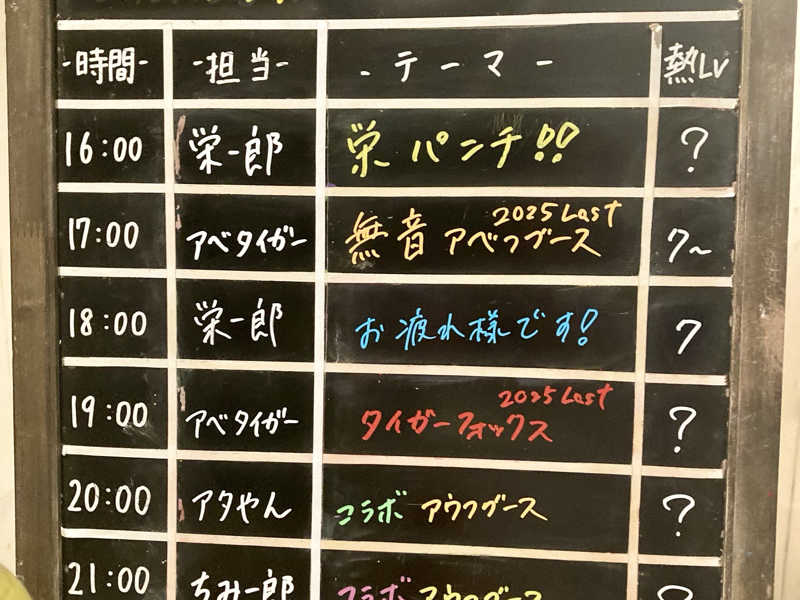 -時間- -担当- - テーマ - 熱Lv
16:00 栄一郎 栄パンチ!! ?
2025 Last
17:00 アベタイガー 無音 アベフブース 7~
18:00 栄一郎 お疲れ様です! 7
2025 Last
19:00 アベタイガー タイガーフォックス ?
20:00 アタやん コラボ アウフグース ?
21:00 ちみ一郎 コラボ アウフグース ?